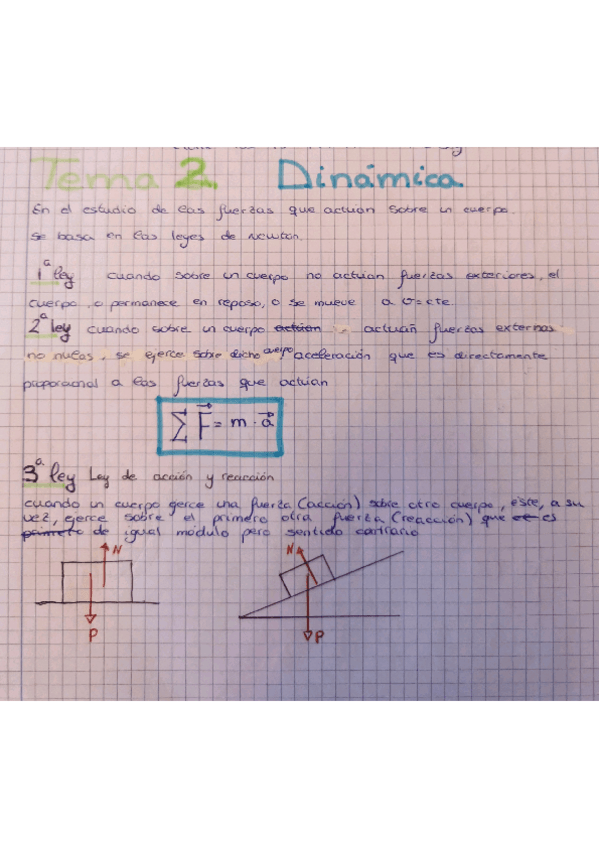 Tema 2. Dinámica
En el estudio de las fuerzas que actúan sobre un cuerpo.
Se basa en las leyes de Newton.
1ª ley cuando sobre un cuerpo no actúan fuerzas exteriores, el
cuerpo, o permanece en reposo, o se mueve a v=cte.
2ª ley cuando sobre un cuerpo actúan actúan fuerzas externas
no nulas, se ejerce sobre dicho cuerpo aceleración que es directamente
proporcional a las fuerzas que actúan
∑ F⃗ = m · a⃗
3ª ley Ley de acción y reacción
cuando un cuerpo ejerce una fuerza (acción) sobre otro cuerpo, este, a su
vez, ejerce sobre el primero otra fuerza (reacción) que es
primero de igual módulo pero sentido contrario
N N
P P